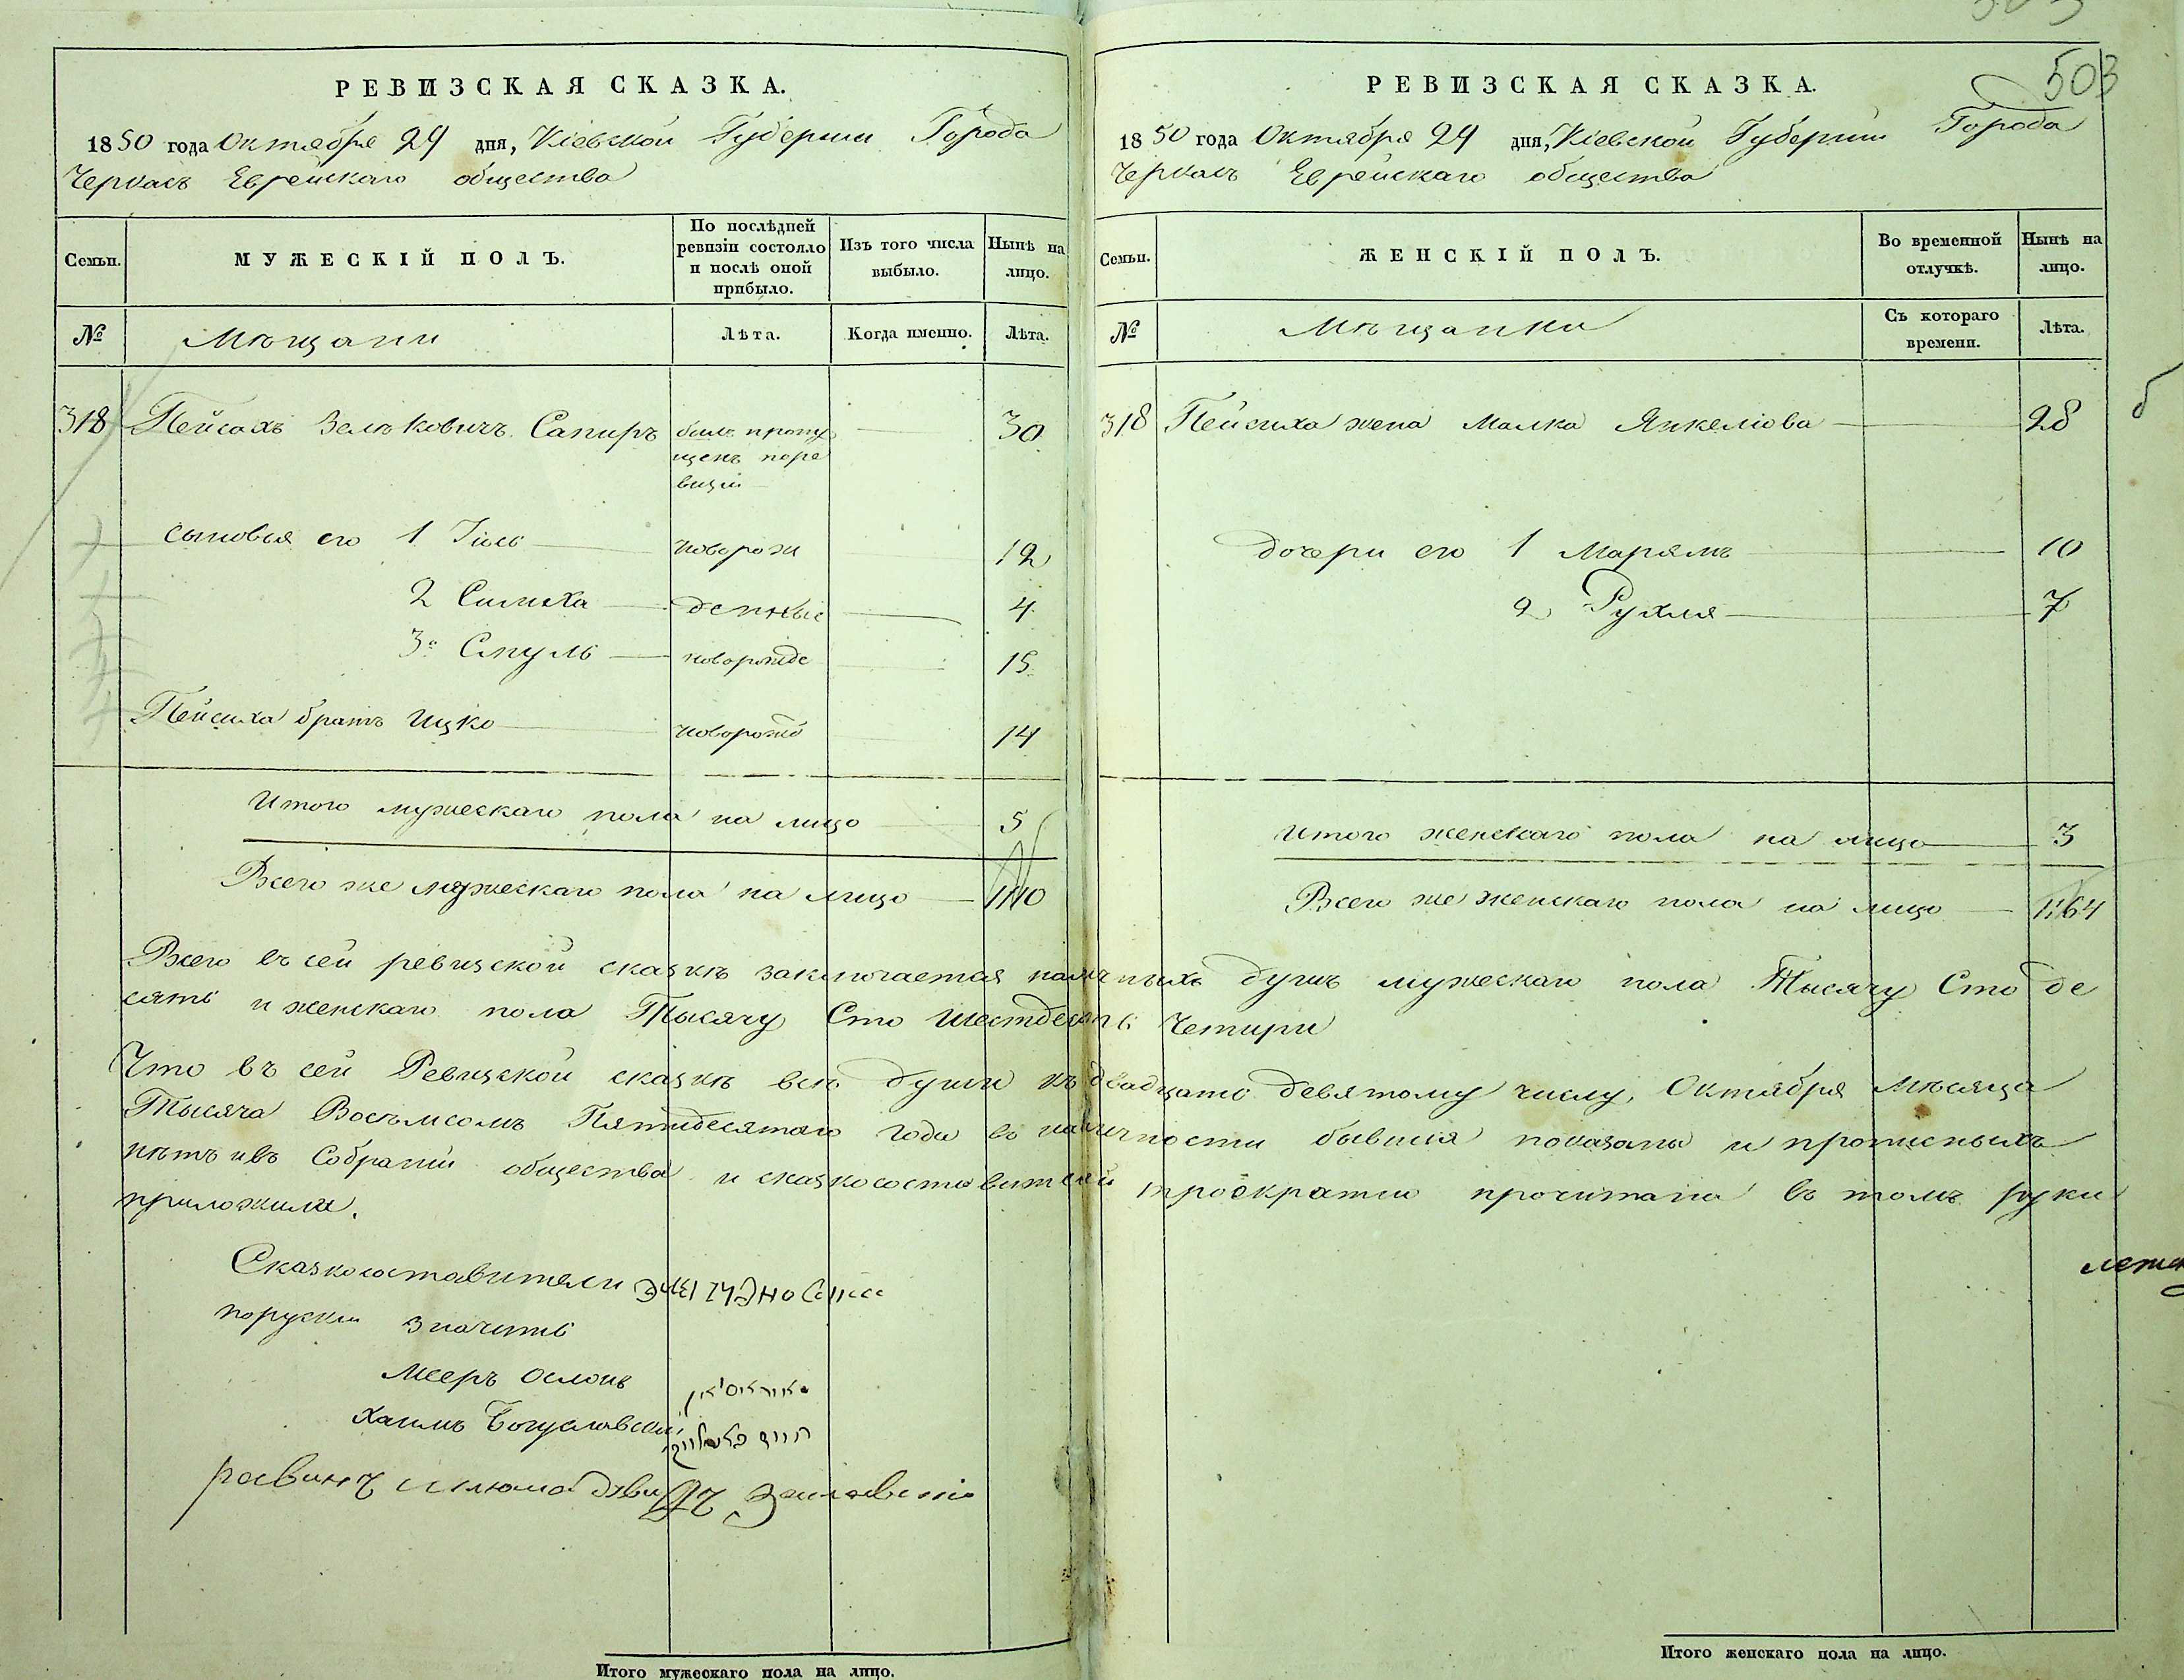 503
РЕВИЗСКАЯ СКАЗКА.
1850 года Октября 29 дня, Кіевской Губерніи Города
Черкасъ Еврейскаго общества
Семьи.
МУЖЕСКІЙ ПОЛЪ.
По послѣдней ревизіи состояло и послѣ оной прибыло.
Изъ того числа выбыло.
Нынѣ на лицо.
№
Мѣщани
Лѣта.
Когда именно.
Лѣта.
318 Пейсахъ Зельковичъ Сапиръ былъ пропу 30
щенъ поре
визіи
сыновья его 1 Іось новорож 12
2 Симха денные 4
3е Смуль новорожде 15
Пейсиха братъ Ицко новорожд 14
Итого мужескаго пола на лицо 5
Всего же мужескаго пола на лицо 1110
РЕВИЗСКАЯ СКАЗКА.
1850 года Октября 29 дня, Кіевской Губерніи Города
Черкасъ Еврейскаго общества
Семьи.
ЖЕНСКІЙ ПОЛЪ.
Во временной отлучкѣ.
Нынѣ на лицо.
№
Мѣщанки
Съ котораго времени.
Лѣта.
318 Пейсиха жена Малка Янкеліова 28
дочери его 1 Марямъ 10
2 Рухля 7
Итого женскаго пола на лицо 3
Всего же женскаго пола на лицо 1164
Всего въ сей ревизской сказкѣ заключается наличныхъ душъ мужескаго пола Тысячу Сто де
сять и женскаго пола Тысячу Сто Шестдесять Четири
Что въ сей Ревизской сказкѣ всѣ души къ двадцать девятому числу, Октября Мѣсяца
Тысяча Восьмсомъ Пятидесятого года въ наличности бывшіа показаны и прописныхъ
нѣтъ ивъ Собраніи общества и сказкосоставителей троекратно прочитана въ томъ руки
приложили.
Сказкосоставители
поруски значить
Мееръ Ослонъ
Хаимъ Богуславскій חיים
равинъ
Итого мужескаго пола на лицо.
Итого женскаго пола на лицо.